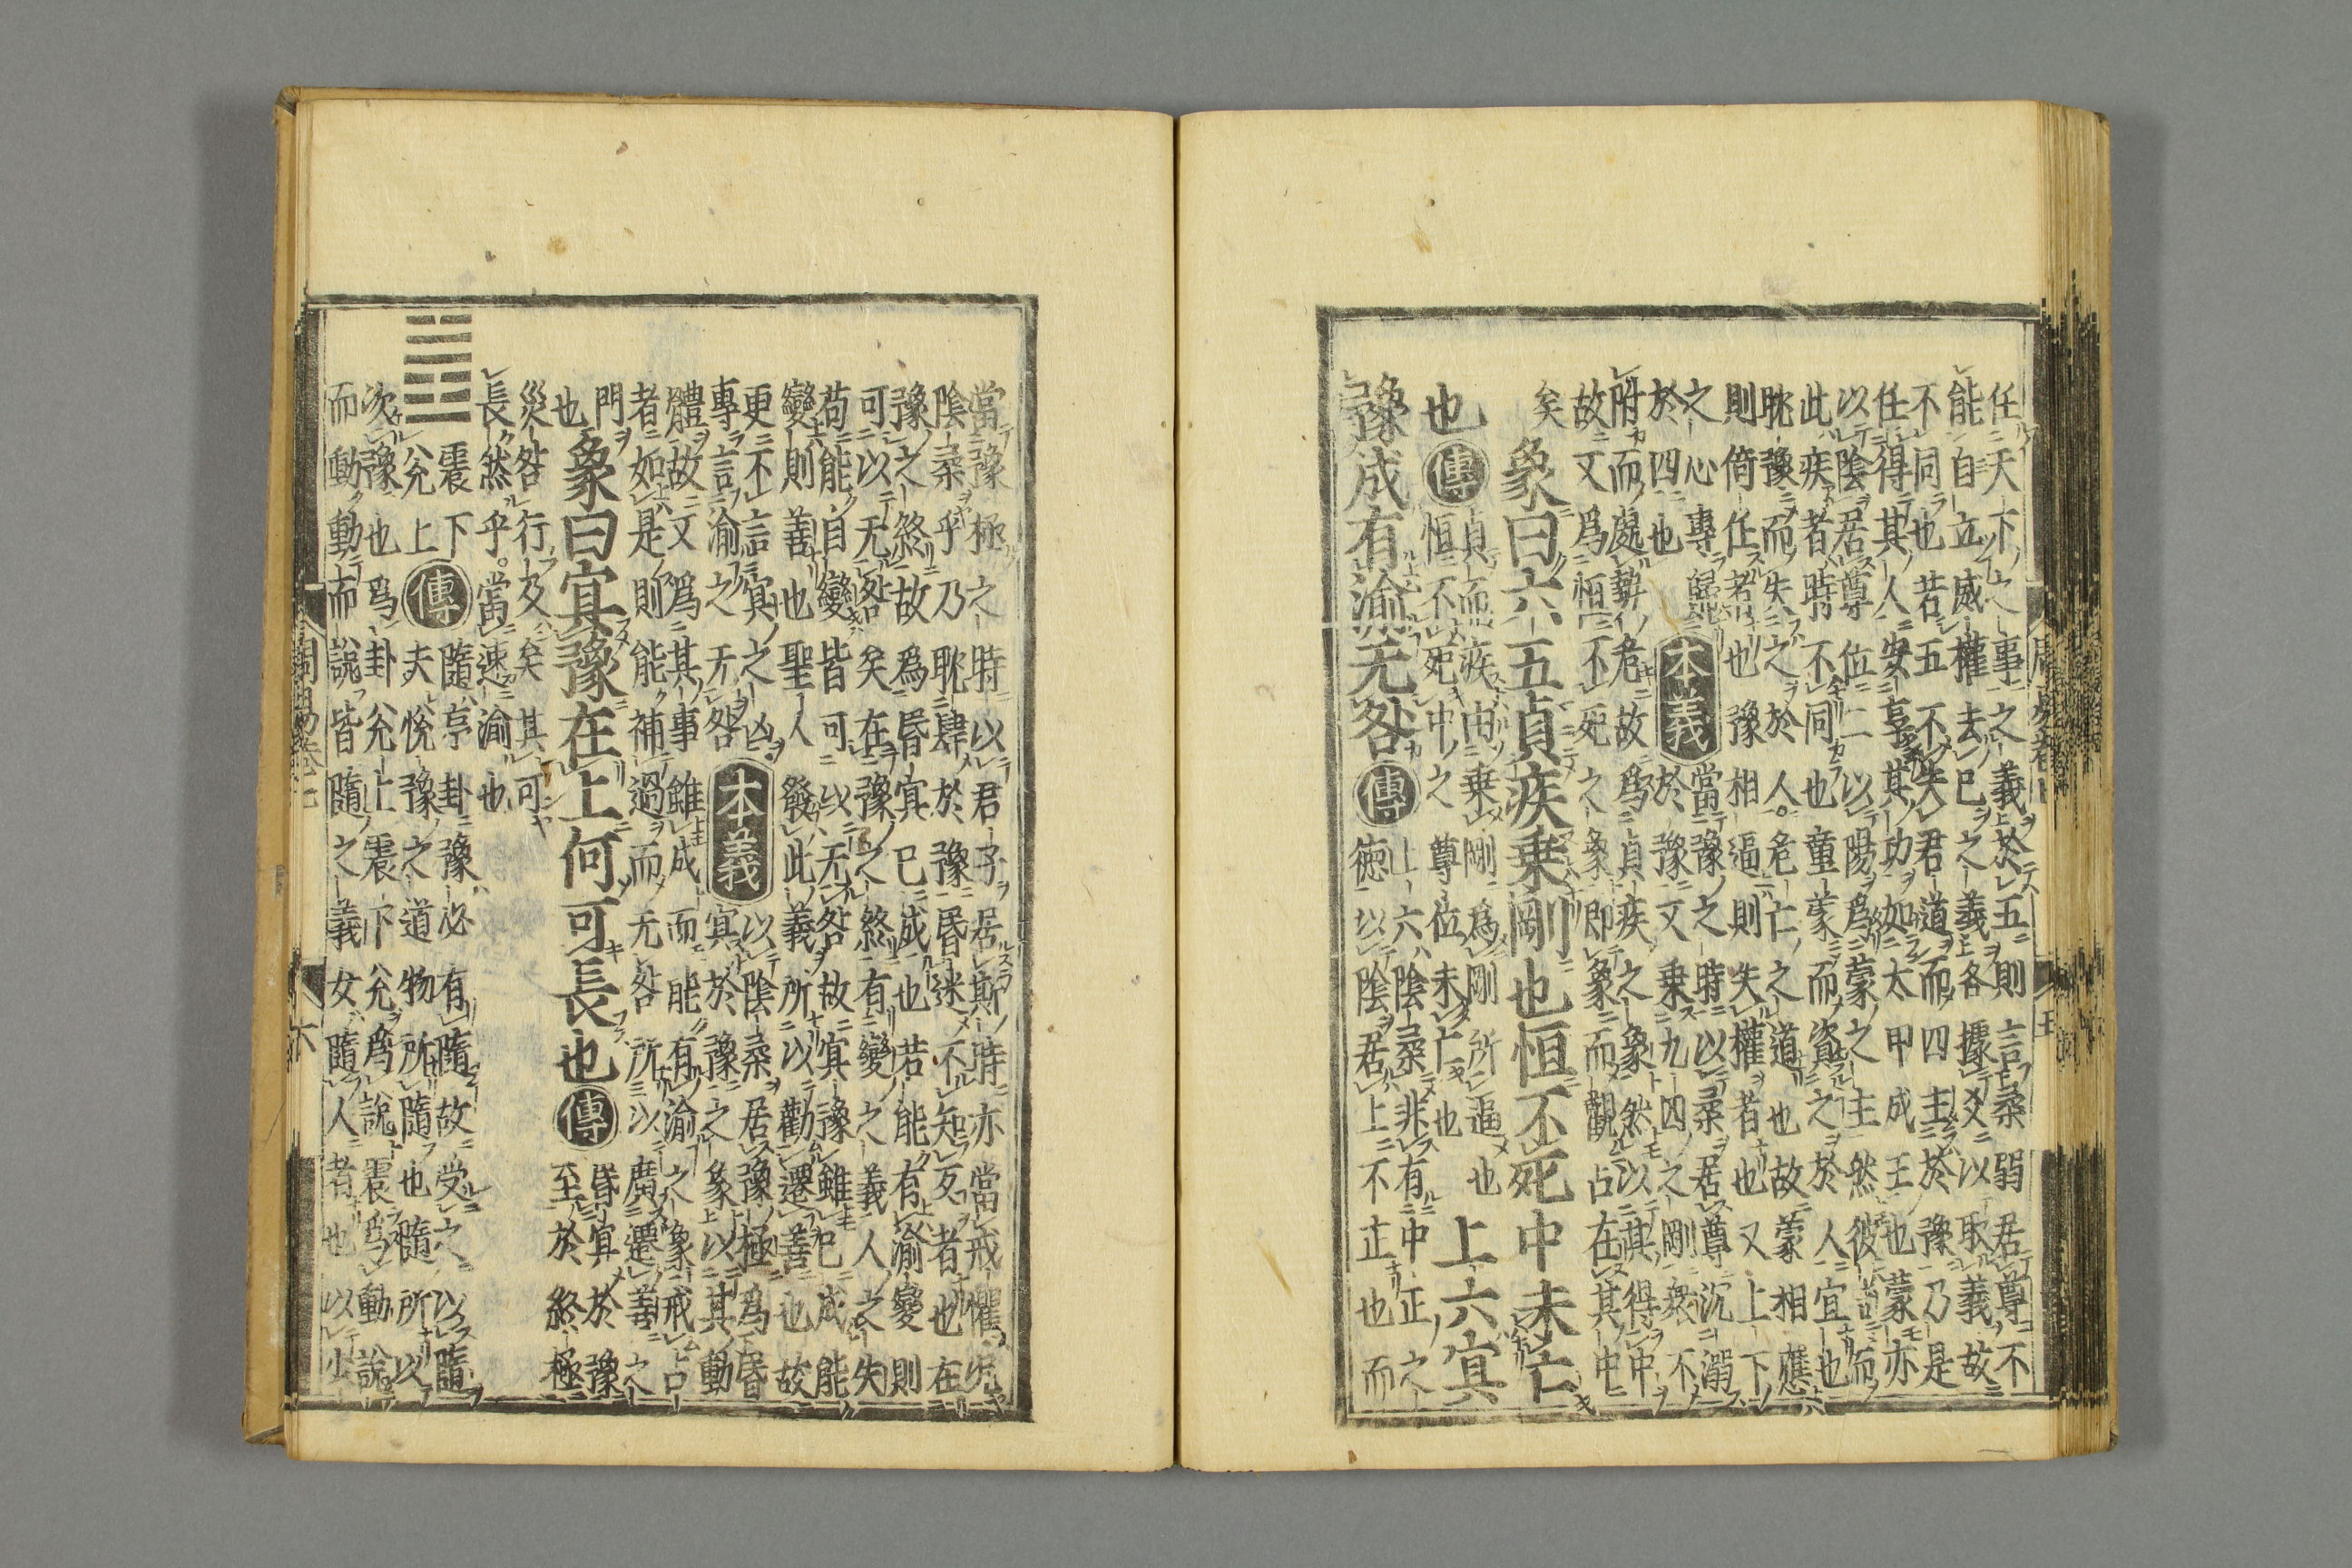 任天下之事之義於五則言柔弱居尊不
能自立威權去已之義各據爻以取義故
不同也若五不失君道而四主於豫乃是
任得其人安享其功如太甲成王也蒙亦
以陰居尊位二以陽爲蒙之主然彼吉而
此疾者時不同也童蒙而資之於人宜也
耽豫而失之於人危亡之道也故蒙相應
則倚任者也豫相逼則失權者也又上下
之心專歸
於四也
本義
當豫之時以柔居尊沉溺
於豫又乘九四之剛衆不
附而處勢危故爲貞疾之象然以其得中
故又爲恒不死之象即象而觀占在其中
矣
象曰六五貞疾乘剛也恒不死中未亡
也
傳
貞而疾由乘剛爲剛所逼也
恒不死中之尊位未亡也
上六冥
豫成有渝无咎
傳
上六陰柔非有中正之
德以陰君上不正也而
當豫極之時以君子居斯時亦當戒懼况
陰柔乎乃耽肆於豫昏迷不知反者也在
豫之終故爲昏冥已成也若能有渝變則
可以无咎矣在豫之終有變之義人之失
苟能自變皆可以无咎故冥豫雖已成能
變則善也聖人發此義所以勸遷善也故
更不言冥之凶
專言渝之无咎
本義
以陰柔居豫極爲昏
冥於豫之象以其動
體故又爲其事雖成而能有渝之象戒占
者如是則能補過而无咎所以廣遷善之
門
也
象曰冥豫在上何可長也
傳
昏冥於豫
至於終極
災咎行及矣其可
長然乎當速渝也
震下
兌上
傳
隨序卦豫必有隨故受之以隨
夫悅豫之道物所隨也隨所以
次豫也爲卦兌上震下兌爲說震爲動說
而動動而說皆隨之義女隨人者也以少
六